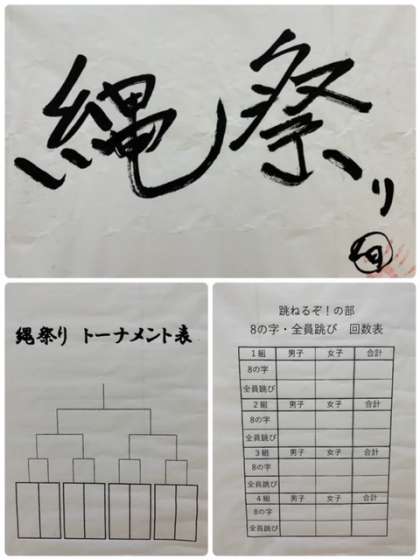 縄祭り
縄祭り トーナメント表
跳ねるぞ！の部
8の字・全員跳び 回数表
1組 男子 女子 合計
8の字
全員跳び
2組 男子 女子 合計
8の字
全員跳び
3組 男子 女子 合計
8の字
全員跳び
4組 男子 女子 合計
8の字
全員跳び